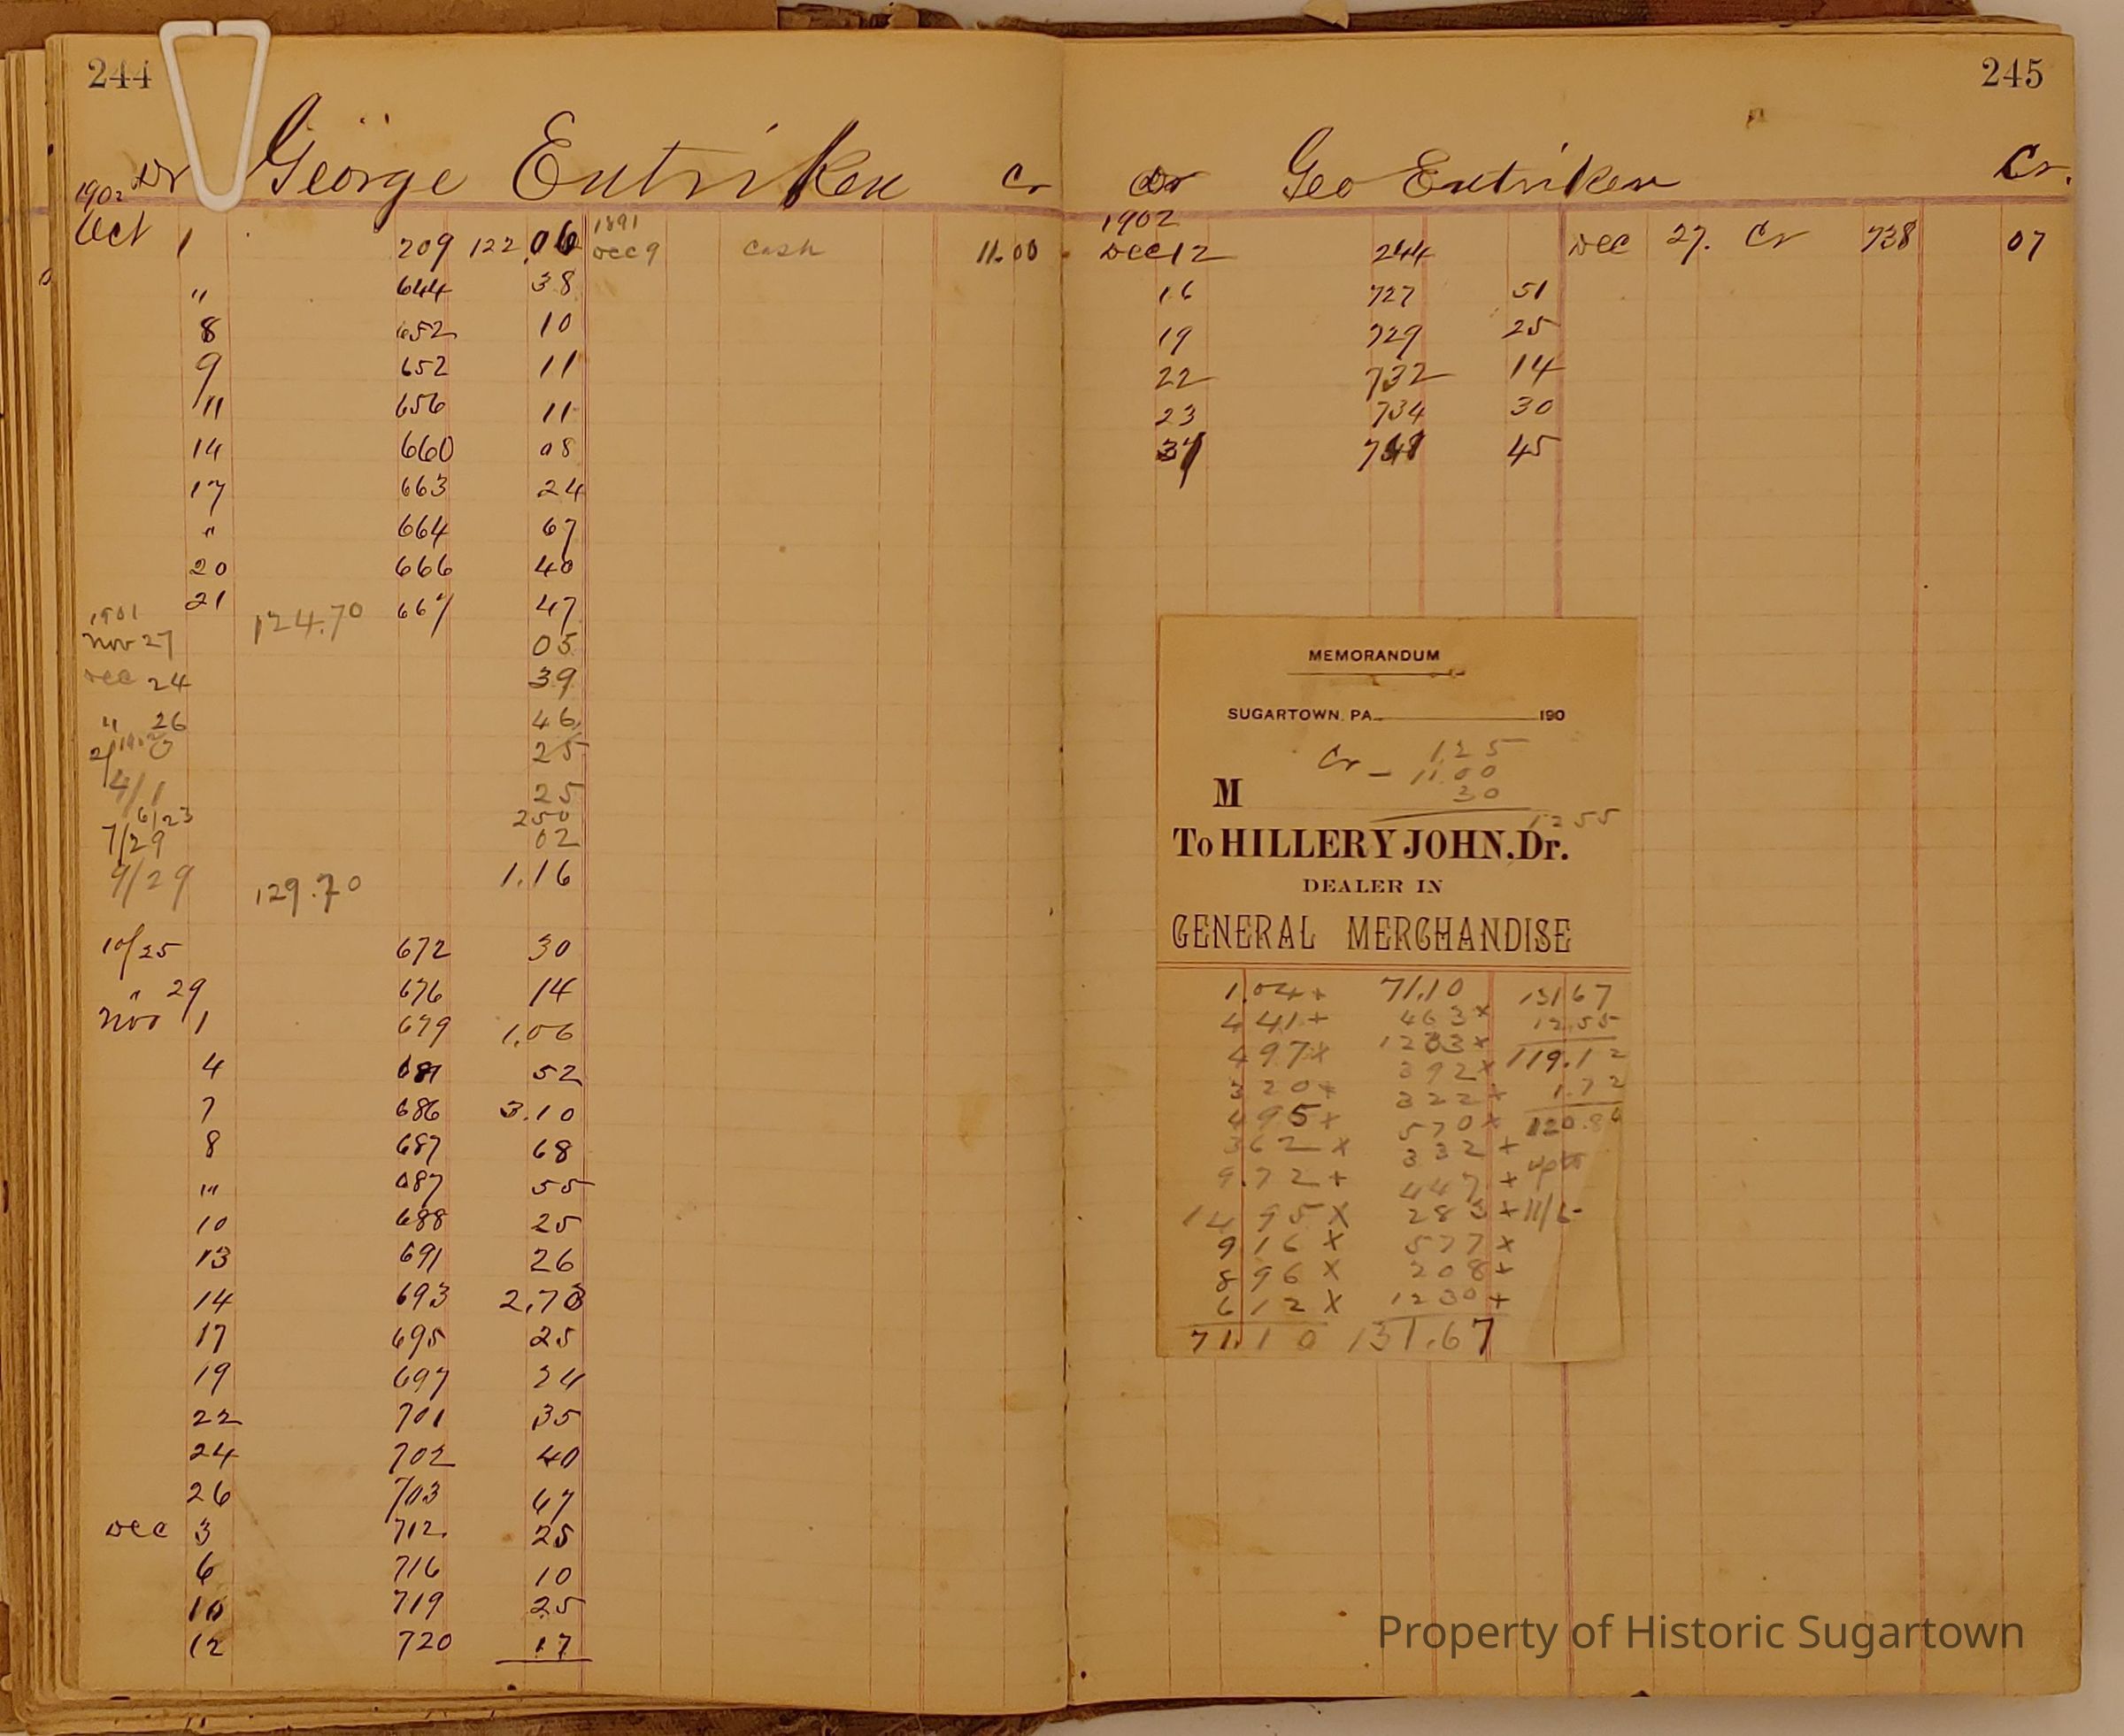 244
George Entriken
Dr Cr
1902
Oct 1 209 122.06 1891 Dec 9 Cash 11.00
" 644 38
8 652 10
9 652 11
11 656 11
14 660 08
17 663 24
" 664 67
20 666 40
21 667 47
124.70
1901
Nov 27 05
Dec 24 39
" 26 46
25
4/1 25
6/23 250
7/29 02
9/29 1.16
129.70
10/25 672 30
" 29 676 14
Nov 1 679 1.06
4 681 52
7 686 3.10
8 687 68
" 687 55
10 688 25
13 691 26
14 693 2.78
17 695 25
19 697 24
22 701 35
24 702 40
26 703 47
Dec 3 712 25
6 716 10
10 719 25
12 720 17
245
Dr Geo Entriken Cr.
1902
Dec 12 244 Dec 27. Cr 738 07
16 727 51
19 729 25
22 732 14
23 734 30
31 45
MEMORANDUM
SUGARTOWN, PA. 190
Cr - 1.25
11.00
30
12 55
M
To HILLERY JOHN. Dr.
DEALER IN
GENERAL MERCHANDISE
1.04 + 71.10 131 67
4 41 + 4 63 x 12.55
4 97 x 12 33 x 119.12
3 20 + 3 92 x 1.72
4 95 + 3 22 + 120.84
3 62 x 5 70 x
9.72 + 3 32 +
14 95 X 4 47 +
9 16 X 2 83 + 11/6
8 96 X 5 77 x
6 12 X 2 08 +
71.10 12 30 +
131.67
Property of Historic Sugartown